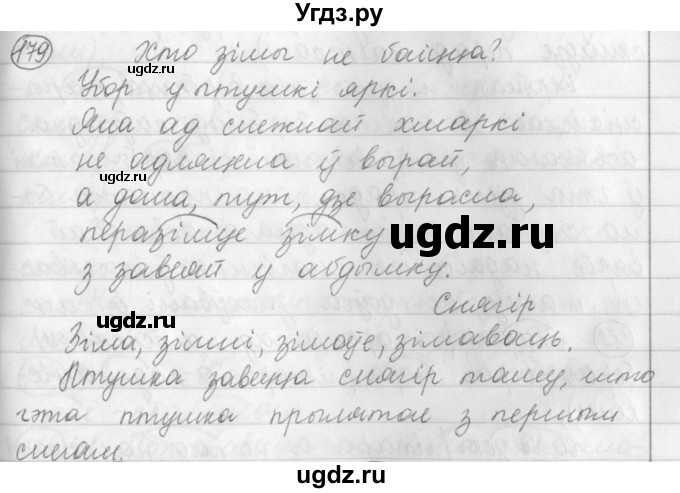 Угдз.ру
179 Хто зімы не баіцца?
Убор у птушкі яркі.
Яна ад снежнай хмаркі
не адляцела ў вырай,
а дома, тут, дзе вырасла,
перазімуе зімку
з завеяй у абдымку.
Снягір
Зіма, зімні, зімоўе, зімаваць.
Птушка завецца снягір таму, што
гэта птушка прылятае з першым
снегам.
ugdz.ru
ugdz.ru
ugdz.ru
ugdz.ru
ugdz.ru
ugdz.ru
ugdz.ru